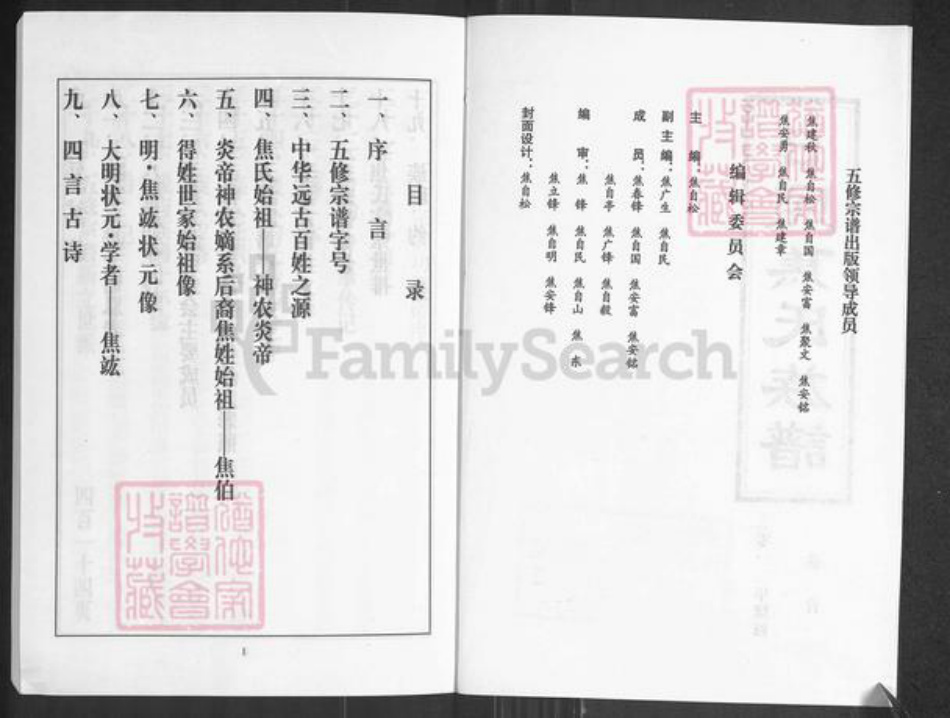 五修宗谱出版领导成员
焦建秋 焦自松 焦自国 焦安富 焦聚文 焦安铭
焦安勇 焦自民 焦建章
编辑委员会
主编：焦自松
副主编：焦广生 焦自民
成员：焦春锋 焦自国 焦安富 焦安铭
焦自亭 焦广锋 焦自毅
编审：焦锋 焦自民 焦自山 焦东
焦立锋 焦自明 焦安锋
封面设计：焦自松
目录
一、序言
二、五修宗谱字号
三、中华远古百姓之源
四、焦氏始祖——神农炎帝
五、炎帝神农嫡系后裔焦姓始祖——焦伯
六、得姓世家始祖像
七、明·焦竑状元像
八、大明状元·学者——焦竑
九、四言古诗
1
FamilySearch